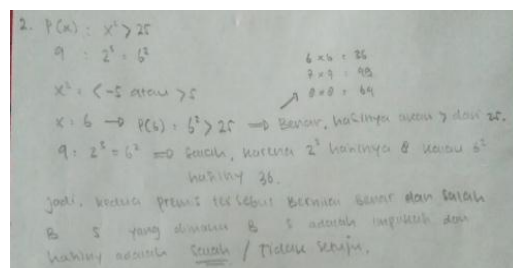 2. P(x) : x² > 25
q : 2³ = 6²
6 x 6 = 36
7 x 7 = 49
8 x 8 = 64
x² = < -5 atau > 5
x = 6 → P(6) = 6² > 25 ⇒ Benar, hasilnya akan > dari 25.
q = 2³ = 6² ⇒ Salah, karena 2³ hasilnya 8 kalau 6²
hasilny 36.
Jadi, kedua premis tersebut bernilai benar dan salah
B S yang dimana B S adalah implikasi dan
hasilny adalah Salah / Tidak Setuju.